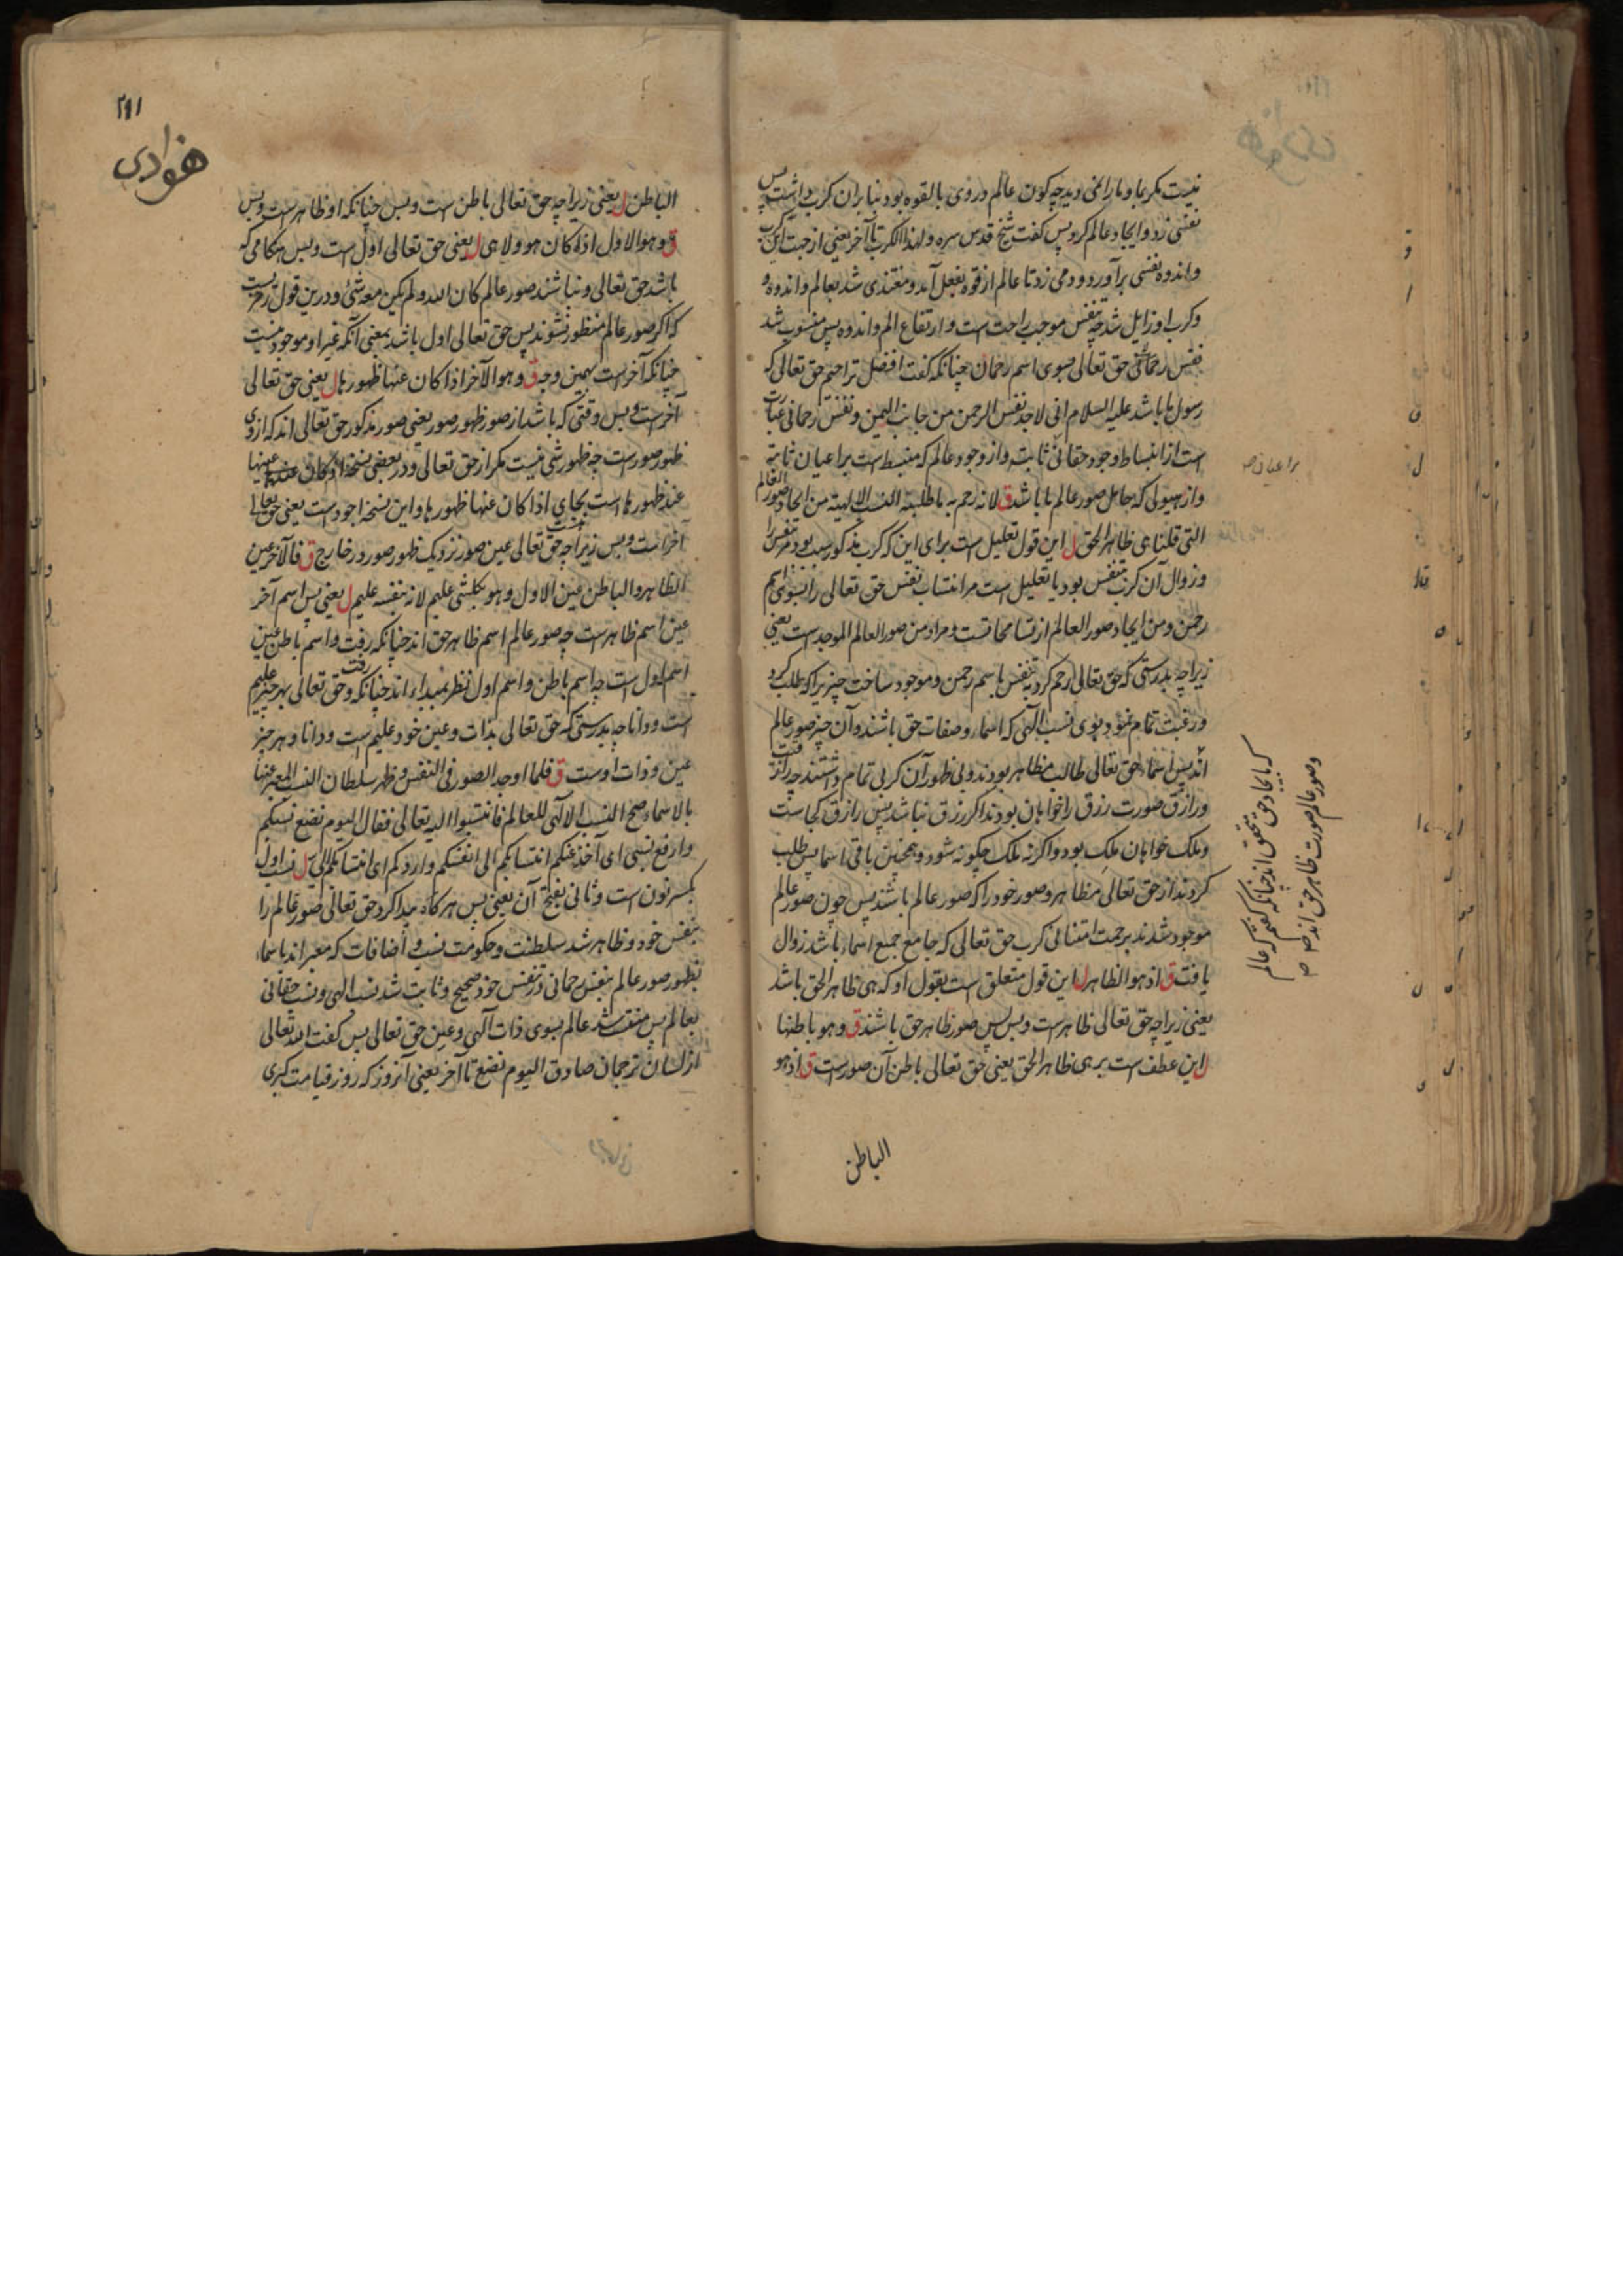 نیست مکر عما و ما را یعنی دیدچه کون عالم در وی بالقوه بود بنا بران کرب داشت پس
نفسی زد و ایجاد عالم کرد پس کفت شیخ قدس سره و لهذا الکرب تا آخر یعنی از جهت این کرب
و اندوه نفسی برآورد و دمی زد تا عالم از قوه بفعل آمد و مغتذی شد بعالم و اندوه
و کرب او زایل شد چه تنفس موجب راحت است و ارتفاع الم و اندوه پس منسوب شد
نفس رحمانی حق تعالی بسوی اسم رحمان چنانکه کفت افضل تراجم حق تعالی که
رسول ما باشد علیه السلام انی لاجد نفس الرحمن من جانب الیمن و نفس رحمانی عبارت
است از انبساط وجود حقانی ثابته و از وجود عالم که منبسط است بر اعیان ثابته
و از هیولی که حامل صور عالم ما باشد ق لانه رحم به ما طلبته النسب الالهیة من ایجاد صور العالم
التی قلنا هی ظاهر الحق ل این قول تعلیل است برای این که کرب مذکور سبب بود مر تنفس را
و زوال آن کرب بتنفس بود یا تعلیل است مر انتساب نفس حق تعالی را بسوی اسم
رحمن و من ایجاد صور العالم از تسامحات است و مراد من صور العالم الموجد است یعنی
زیراچه بدرستی که حق تعالی رحم کرد بتنفس باسم رحمن و موجود ساخت چیزیرا که طلب کرد
و رغبت تمام نمود بوی نسب الهی که اسماء و صفات حق باشند و آن چیز صور عالم
اند پس اسماء حق تعالی طالب مظاهر بودند و بی ظهور آن کربی تمام داشتند چه رازقیت
و رازق صورت رزق را خواهان بودند اکر رزق نباشد پس رازق کجاست
و ملک خواهان ملک بود و اکر نه ملک چکونه شود و همچنین باقی اسما پس طلب
کردند از حق تعالی مظاهر و صور خود را که صور عالم باشند پس چون صور عالم
موجود شدند برحمت امتنانی کرب حق تعالی که جامع جمیع اسماء باشد زوال
یافت ق اذ هو الظاهر ل این قول متعلق است بقول او که هی ظاهر الحق باشد
یعنی زیراچه حق تعالی ظاهرست و بس پس صور ظاهر حق باشند ق و هو باطنها
ل این عطف است بر هی ظاهر الحق یعنی حق تعالی باطن آن صورست ق اذ هو
الباطن
بر اعیان
که بایجاد حق متحقق اند چنانکه کفتیم که عالم
و صور عالم صورت ظاهر حق اند
۲۹۱
الباطن ل یعنی زیراچه حق تعالی باطن ست و بس چنانکه او ظاهرست و بس
ق و هو الاول اذ کان هو و لا هی ل یعنی حق تعالی اول است و بس هنکامی که
باشد حق تعالی و نباشند صور عالم کان الله و لم یکن معه شیء و درین قول رمزیست
که اکر صور عالم منظور نشوند پس حق تعالی اول باشد بمعنی آنکه غیر او موجود نیست
چنانکه آخرست بهمین وجه ق و هو الآخر اذا کان عنها ظهورها ل یعنی حق تعالی
آخرست و بس وقتی که باشد از صور ظهور صور یعنی صور مذکور حق تعالی اند که از وی
ظهور صورست چه ظهور شی نیست مکر از حق تعالی و در بعضی نسخه اذ کان عینها
عند ظهورها است بجای اذا کان عنها ظهورها و این نسخه اجود است یعنی حق تعالی
آخر است و بس زیراچه حق تعالی عین صور نزدیک ظهور صور در خارج ق فالآخر عین
الظاهر و الباطن عین الاول و هو بکل شی علیم لانه بنفسه علیم ل یعنی پس اسم آخر
عین اسم ظاهرست چه صور عالم اسم ظاهر حق اند چنانکه رفت و اسم باطن عین
اسم اول ست چه اسم باطن و اسم اول نظر بمبداء اند چنانکه رفت و حق تعالی بهر چیز علیم
است و دانا چه بدرستی که حق تعالی بذات و عین خود علیم است و دانا و هر چیز
عین و ذات اوست ق فلما اوجد الصور فی النفس و ظهر سلطان النسب المعبر عنها
بالاسماء صح النسب الآلهی للعالم فانتسبوا الیه تعالی فقال الیوم نضع نسبکم
و ارفع نسبی ای آخذ عنکم انتسابکم الی انفسکم و اردکم الی انتسابکم الی ل نسب اول
بکسر نون است و ثانی بفتح آن یعنی پس هرکاه پیدا کرد حق تعالی صور عالم را
بنفس خود و ظاهر شد سلطنت و حکومت نسب و اضافات که معبر اند باسماء
بظهور صور عالم بنفس رحمانی و تنفس خود صحیح و ثابت شد نسب الهی و نسب حقانی
بعالم پس منتسب شد عالم بسوی ذات آلهی و عین حق تعالی پس کفت الله تعالی
از لسان ترجمان صادق الیوم نضع تا آخر یعنی آنروز که روز قیامت کبری